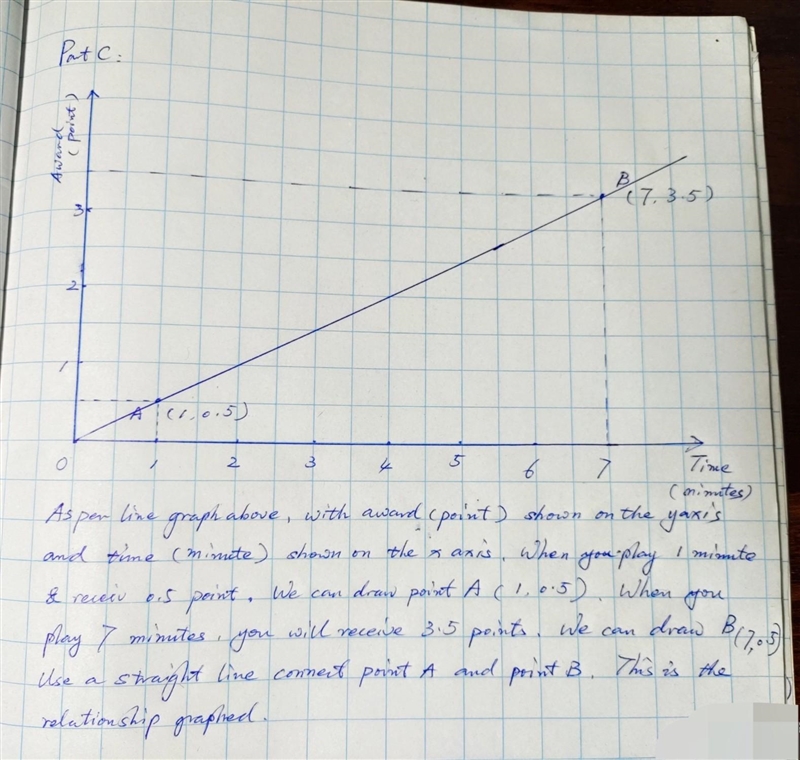 Part C:
Award
(point)
3
2
1
0
1 2 3 4 5 6 7
Time
(minutes)
A (1, 0.5)
B
(7, 3.5)
As per line graph above, with award (point) shown on the y axis
and time (minute) shown on the x axis. When you play 1 minute
& receiv 0.5 point. We can draw point A (1, 0.5). When you
play 7 minutes, you will receive 3.5 points. We can draw B (7, 0.5)
Use a straight line connect point A and point B. This is the
relationship graphed.